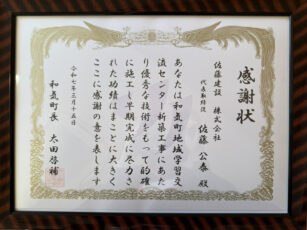 感謝状
佐藤建設 株式会社
代表取締役
佐藤公泰 殿
あなたは和気町地域学習交
流センター新築工事にあた
り優秀な技術をもって的確
に施工し早期完成に尽力さ
れた功績はまことに大きく
ここに感謝の意を表します
令和七年三月十五日
和気町長 太田啓補